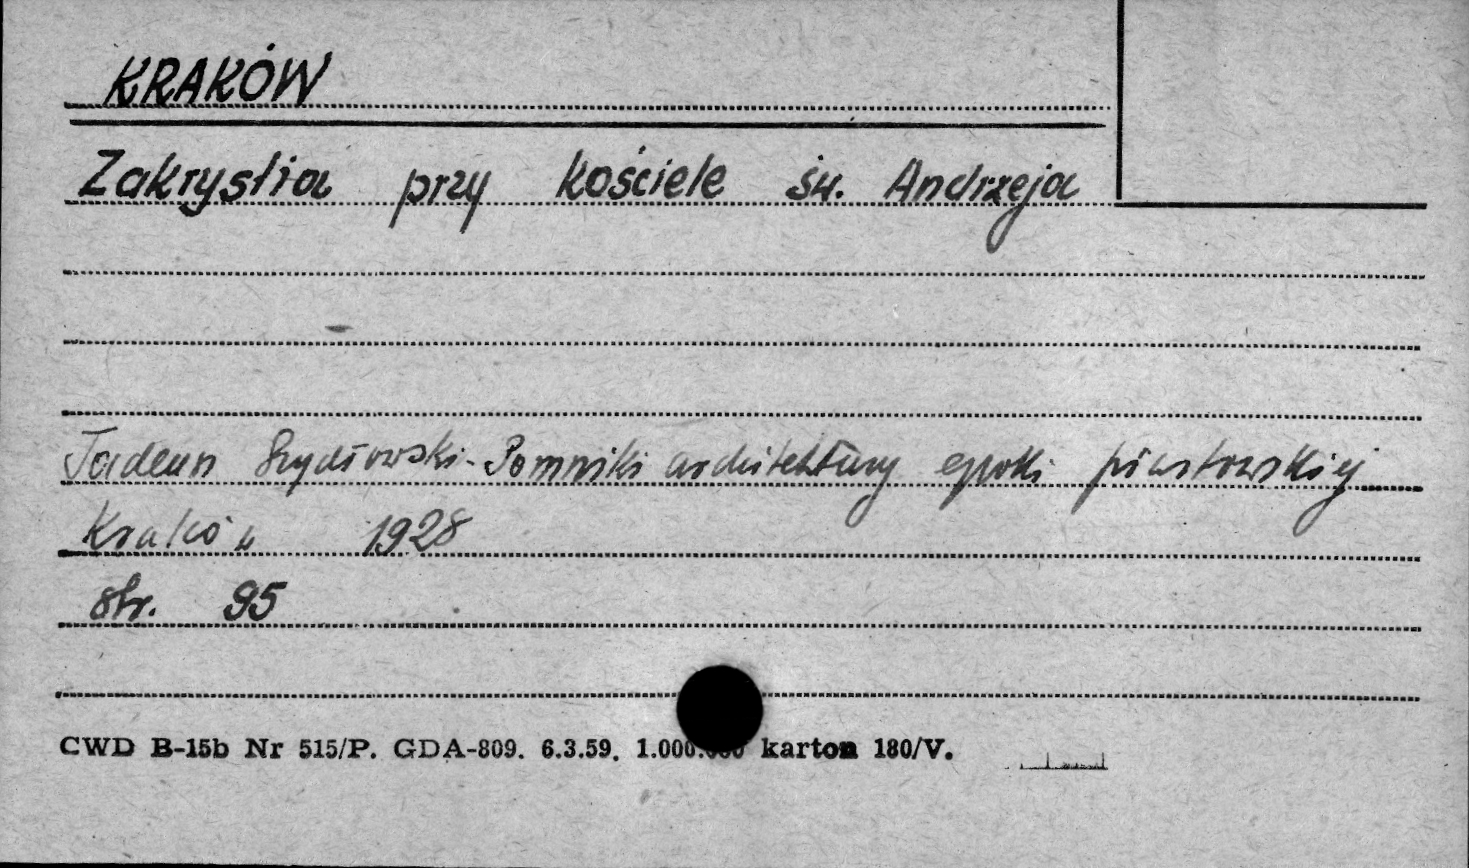 KRAKÓW
Zakrystia przy kościele św. Andrzeja
Tadeusz Szydłowski - Pomniki architektury epoki piastowskiej
Kraków 1928
str. 95
CWD B-15b Nr 515/P. GDA-809. 6.3.59. 1.000.000 karton 180/V.